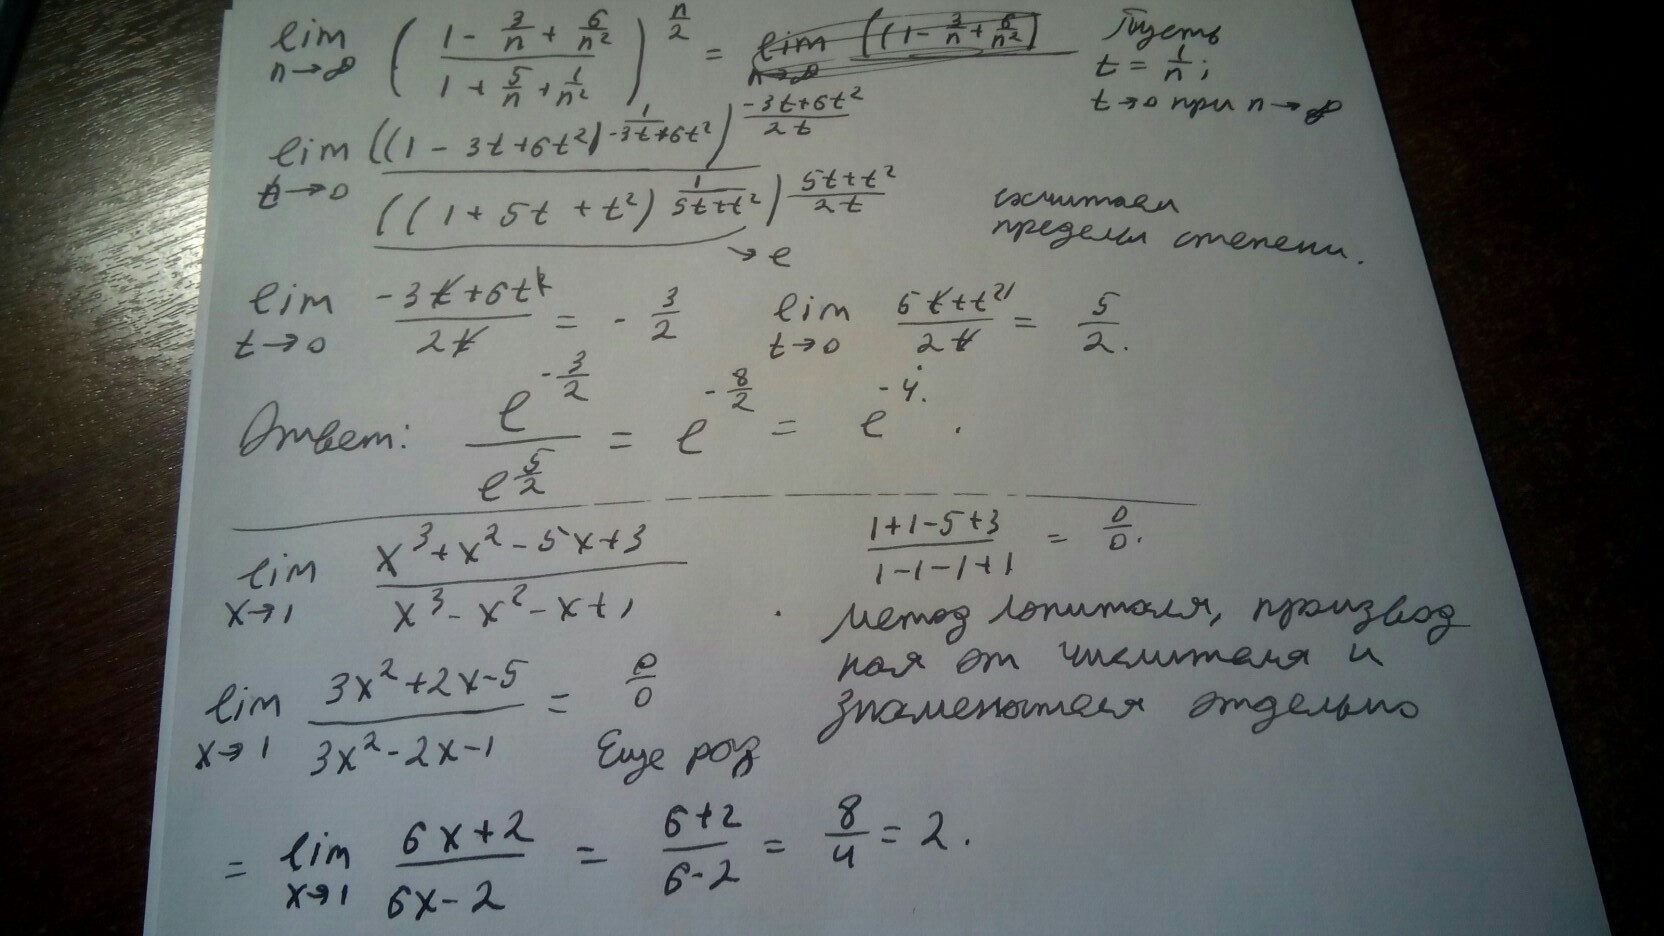 lim n→∞ ((1 - 3/n + 6/n²)/(1 + 5/n + 1/n²))^(n/2) = lim n→∞ ((1 - 3/n + 6/n²)
Пусть
t = 1/n;
t→0 при n→∞
lim t→0 ((1 - 3t + 6t²)^(1/(-3t+6t²)))^((-3t+6t²)/(2t)) / ((1 + 5t + t²)^(1/(5t+t²)))^((5t+t²)/(2t))
→ e
считаем
пределы степени.
lim t→0 (-3t+6t²)/(2t) = - 3/2 lim t→0 (5t+t²)/(2t) = 5/2.
Ответ: e^(-3/2)/e^(5/2) = e^(-8/2) = e^(-4).
lim x→1 (x³+x²-5x+3)/(x³-x²-x+1) (1+1-5+3)/(1-1-1+1) = 0/0.
метод лопиталя, производ
ная от числителя и
знаменателя отдельно
lim x→1 (3x²+2x-5)/(3x²-2x-1) = 0/0
Еще раз
= lim x→1 (6x+2)/(6x-2) = (6+2)/(6-2) = 8/4 = 2.